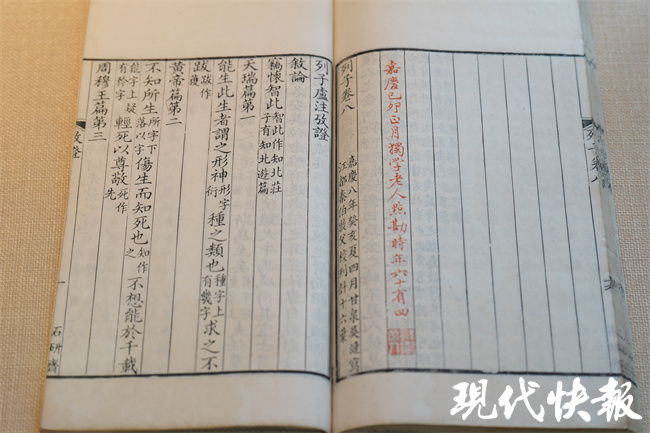 列子卷八
嘉慶己卯正月獨學老人㸃勘時年六十有四
嘉慶八年癸亥夏四月甘泉吳鍵寫
江都秦伯敦父校刊計十六葉
列子卷八
列子盧注攷證
敘論
鞱懷智此智此作知北莊子有知北遊篇
天瑞篇第一
能生此生者謂之形神形字衍種之類也種字上有幾字求之不
跋跋作廢
黃帝篇第二
不知所生所字下落以字傷生而知死也知作之不想能於千載
能字上疑有於字輕死以尊敬死作先
周穆王篇第三
攷證
一
石研齋
現代快報